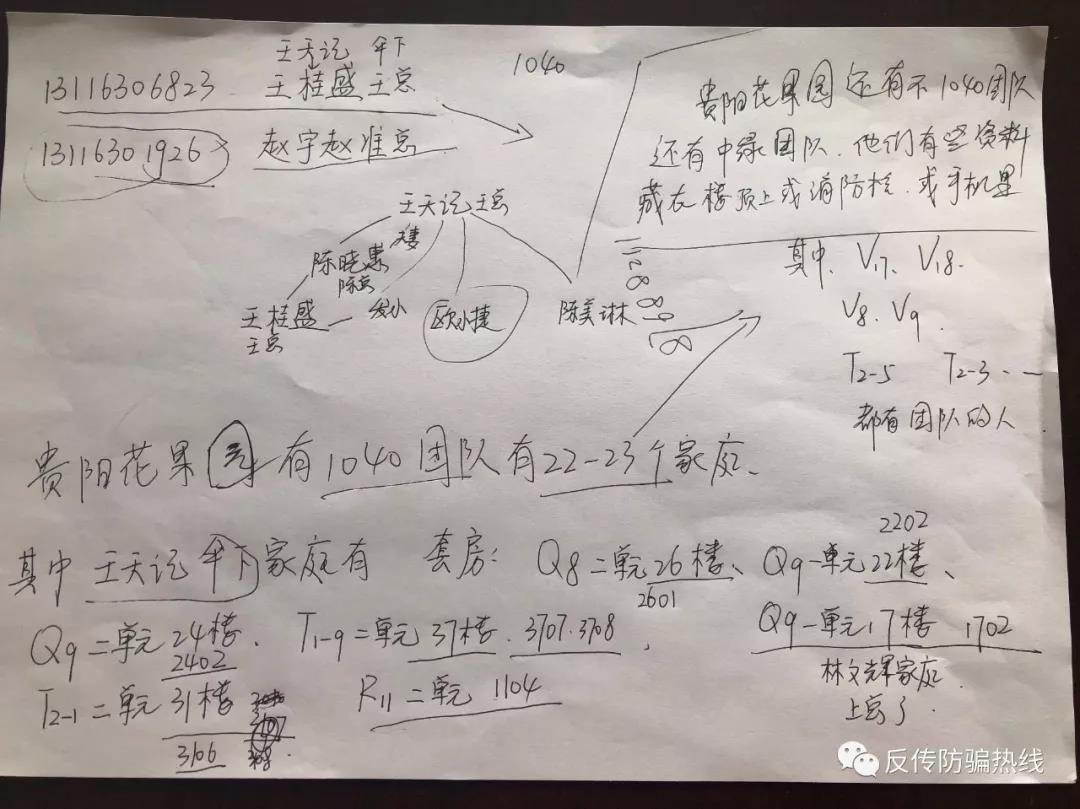 王天记 伞下
13116306823 王桂盛王总
13116301926 赵宇赵准总
1040
贵阳花果园还有不1040团队
还有中绿团队、他们有些资料
藏在楼顶上或消防栓、或手机里
王天记王总
陈晓惠
陈总
王桂盛
王总
发小
欧小捷
陈美琳
其中、V17、V18.
V8、V9
T2-5 T2-3
都有团队的人
贵阳花果园有1040团队有22-23个家庭、
其中王天记伞下家庭有 套房: Q8二单元26楼、 Q9一单元22楼、
2601
2202
Q9二单元24楼、 T1-9二单元37楼、3707.3708 , Q9一单元17楼 1702
2402
T2-1二单元31楼 R11二单元 1104
3106
林文辉家庭
上总了.
反传防骗热线